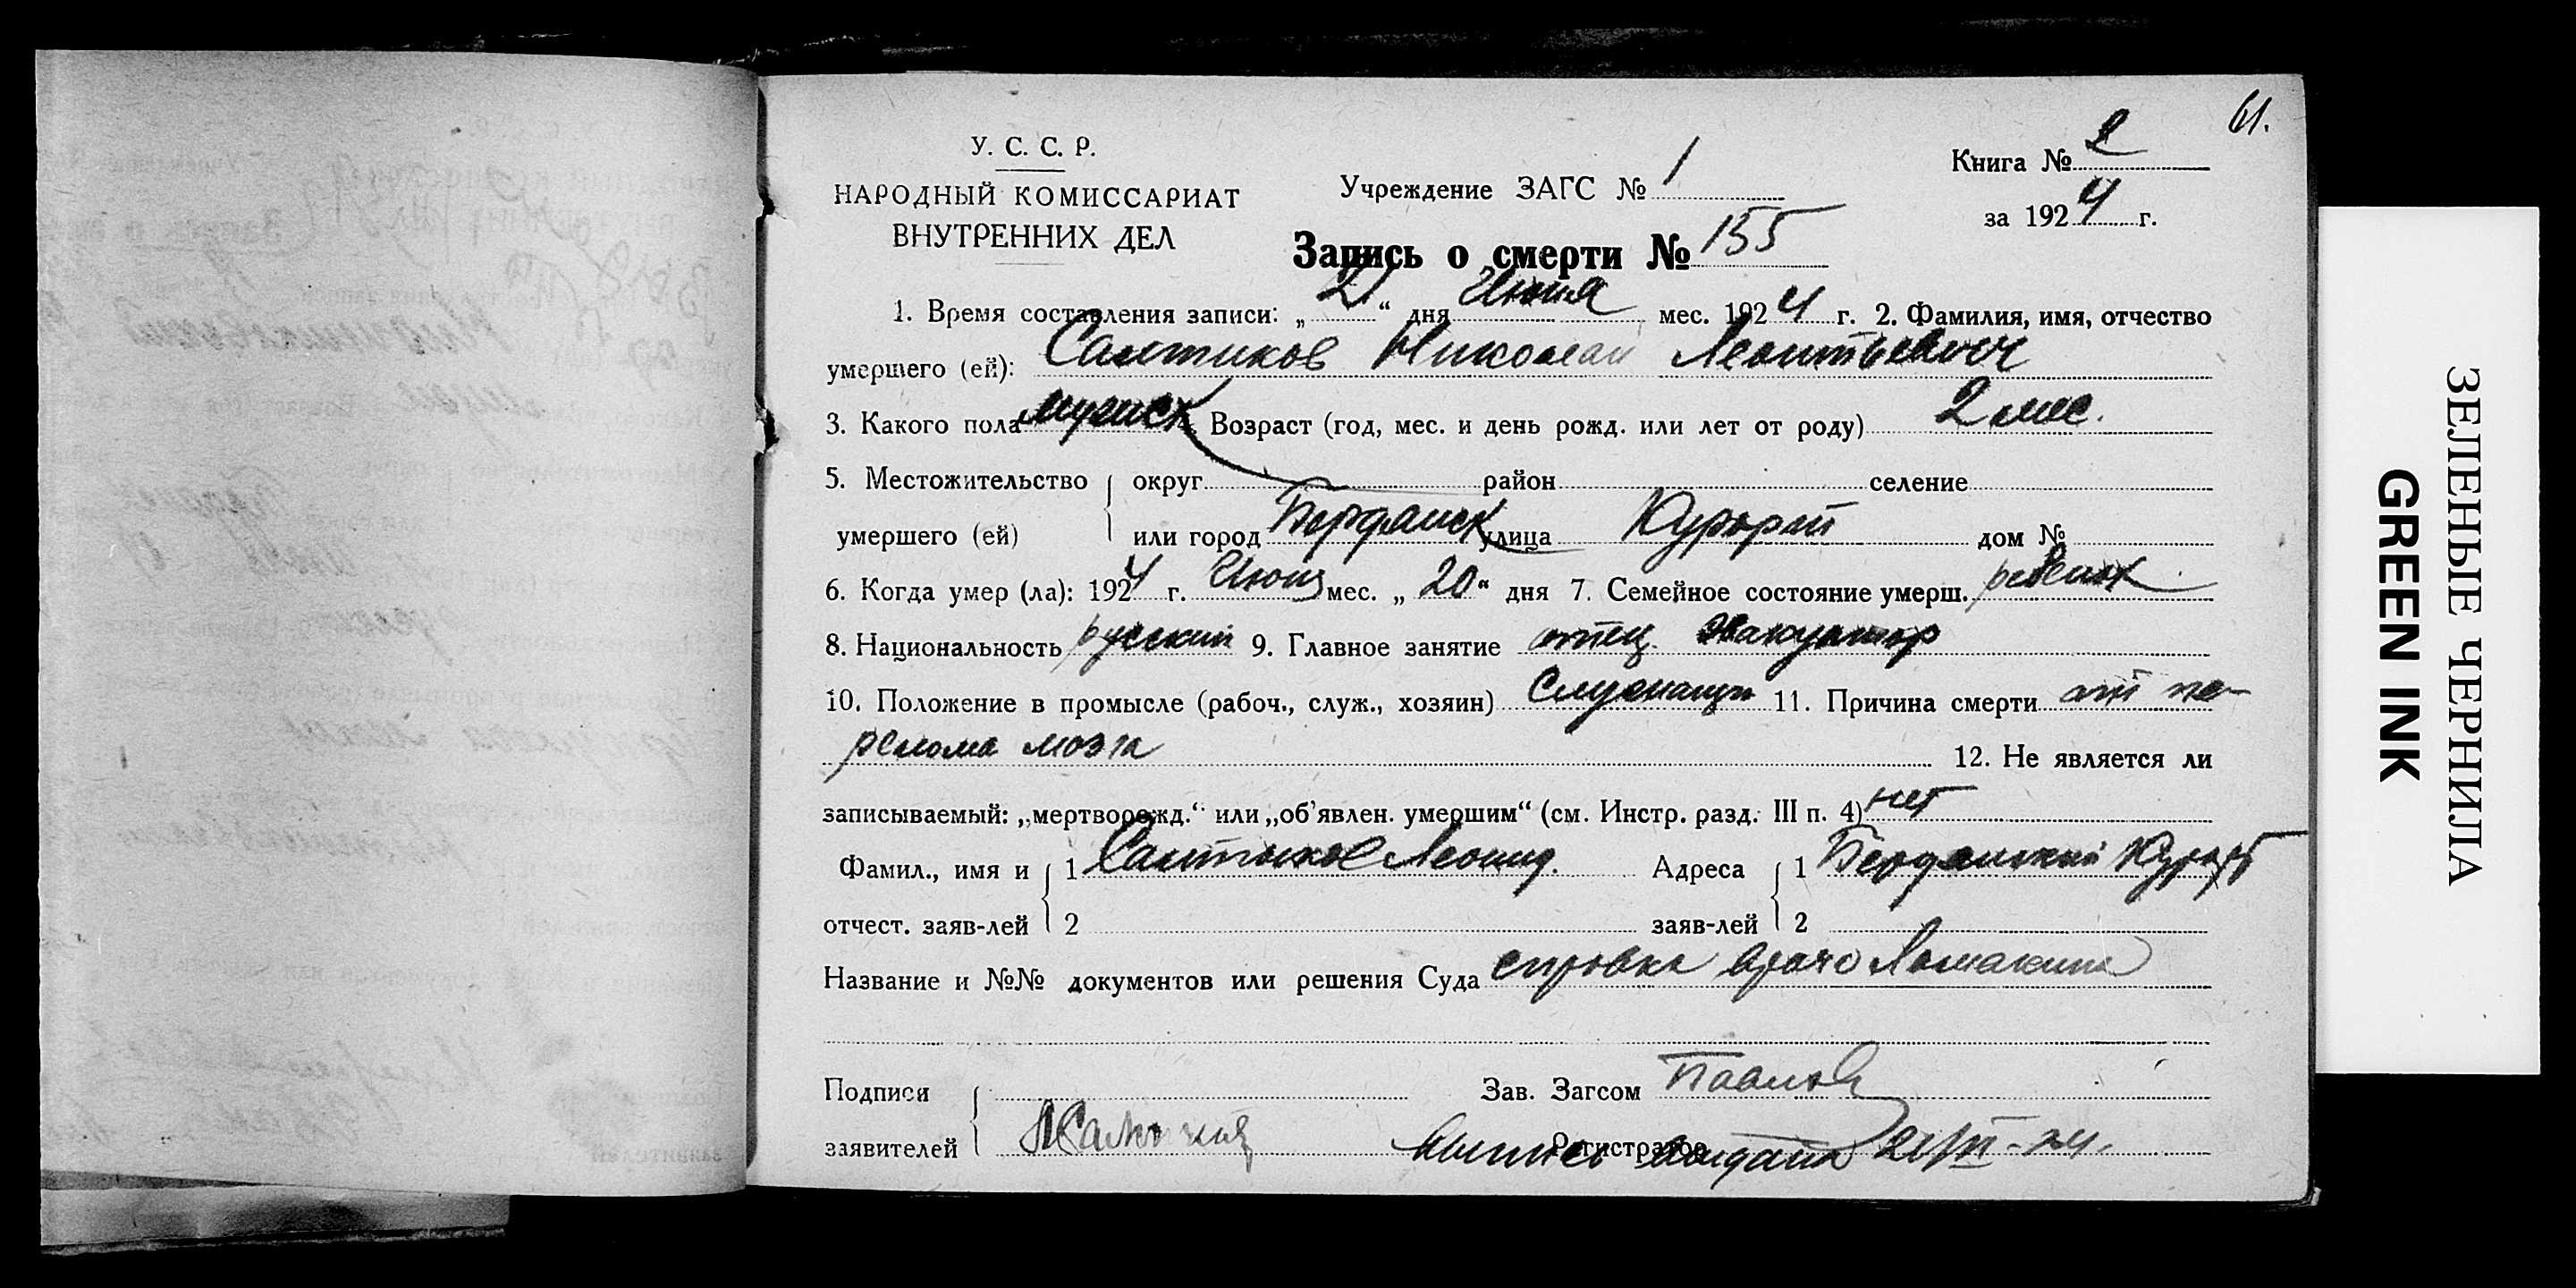 61.
У. С. С. Р.
НАРОДНЫЙ КОМИССАРИАТ
ВНУТРЕННИХ ДЕЛ
Учреждение ЗАГС № 1
Книга № 2
за 1924 г.
Запись о смерти № 155
1. Время составления записи: „21“ дня Июня мес. 1924 г. 2. Фамилия, имя, отчество
умершего (ей): Салтиков Николай Леонтьевич
3. Какого пола мужск Возраст (год, мес. и день рожд. или лет от роду) 2 мес.
5. Местожительство округ район селение
умершего (ей) или город Бердянск улица Курорт дом №
6. Когда умер (ла): 1924 г. Июня мес. „20“ дня 7. Семейное состояние умерш. ребенок
8. Национальность русский 9. Главное занятие отец
10. Положение в промысле (рабоч., служ., хозяин) Служащий 11. Причина смерти от пе-
релома мозга 12. Не является ли
записываемый: „мертворожд.“ или „об’явлен. умершим“ (см. Инстр. разд. III п. 4) нет
Фамил., имя и 1 Салтыков Леонид. Адреса 1 Бердянский Курорт
отчест. заяв-лей 2 заяв-лей 2
Название и №№ документов или решения Суда справка врача Ломакина
Подписи Зав. Загсом Павлов
заявителей Регистратор
выпись выдана 21/VI-24.
ЗЕЛЕНЫЕ ЧЕРНИЛА
GREEN INK